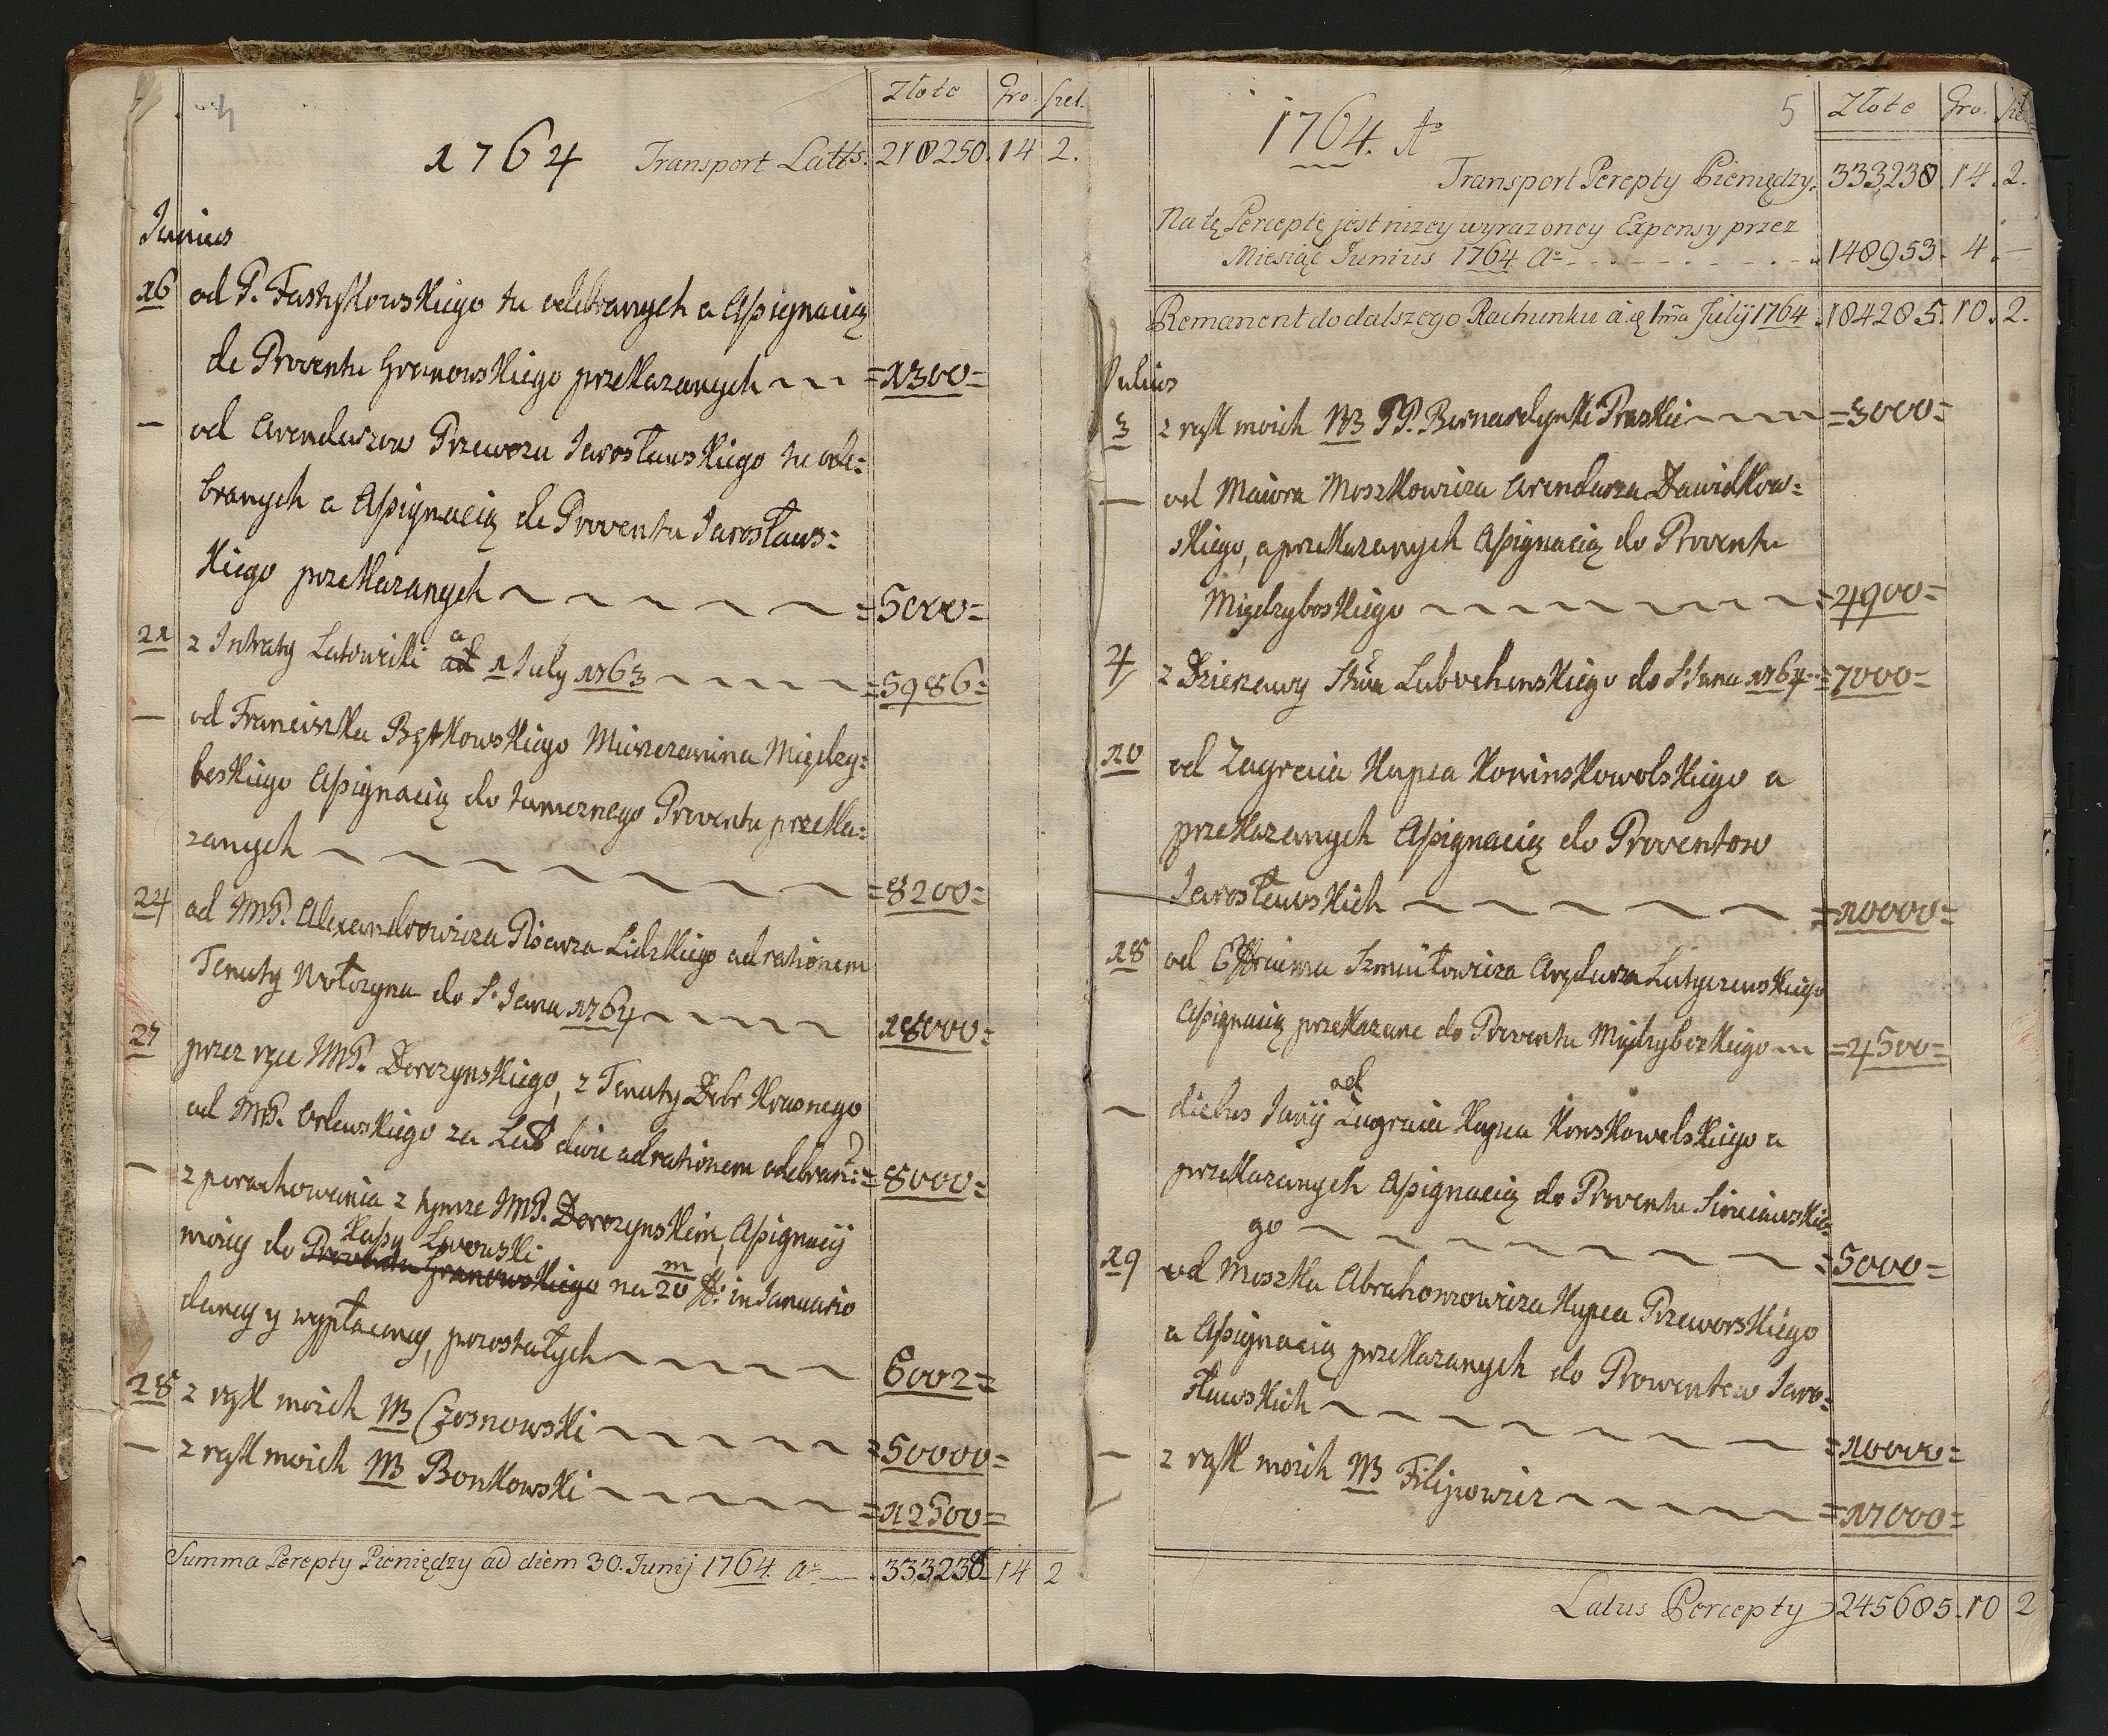 Złote Gro. szel.
1764 Transport Latts. 218250. 14 2.
Junius
16 od P. Fastykowskiego tu odebranych a Assignacią
de Proventu Granowskiego przekazanych =1300=
— od Arendarzow Przewozu Jarosławskiego tu ode=
branych a Assignacią de Proventu Jarosław=
skiego przekazanych =5000=
21 z Intraty Latowiski a ad 1 July 1763 =5986=
— od Franciszka Bętkowskiego Mieszczanina Między=
beskiego Assignacią do tamecznego Proventu przeka=
zanych =8200=
24 od JMP. Alexandrowicza Pisarza Lidzkiego ad rationem
Tenuty Wołozyna do S. Jana 1764 18000=
27 przez ręce JMP. Dorozynskiego, z Tenuty Dobr Krasnego
od JMP. Orłowskiego za Lat dwie ad rationem odebran: =8000=
— z porachowania z tymze JMP. Dorozynskim, Assignacij
Kassy Lwowski
moiey do Proventu Granowskiego na 20 m zł: in Januario
daney y wypłaconey, pozostałych 6002=
28 z rąk moich NB Czosnowski =50000=
— z rąk moich NB Bonkowski =12500=
Summa Percepty Pieniędzy ad diem 30. Junij 1764. Aº — 333238. 14 2
5 Złote Gro. szel.
1764. Aº
Transport Percepty Pieniędzy. 333238. 14. 2.
Na tę Perceptę jest nizey wyrazoney Expensy przez
Miesiąc Junius 1764 Aº 148953. 4. —
Remanent do dalszego Rachunku a die 1ma Julij 1764. 184285. 10. 2.
Julius
3 z rąk moich NB PP. Bernardynki Praskie =3000=
— od Maiora Moszkowicza Arendarza Dawidkow=
skiego, a przekazanych Assignacią do Proventu
Międzyboskiego =4900=
4 z Dzierzawy Stwa Lubochenskiego do S. Jana 1764 =7000=
10 od Zagraia Kupca Koninskowolskiego a
przekazanych Assignacią do Proventow
Jarosławskich =10000=
18 od Efroima Szmułowicza Arędarza Latyczewskiego
Assignacią przekazane do Proventu Międzyboskiego =4500=
— dictus Juny od Zagraia Kupca Konskowolskiego a
przekazanych Assignacią do Proventu Sieniawskie=
go =5000=
19 od Moszka Abrahomowicza Kupca Przeworskiego
a Assignacią przekazanych do Prowentow Jaro=
sławskich =10000=
— z rąk moich NB Filipowicz =17000=
Latus Percepty 245685. 10 2